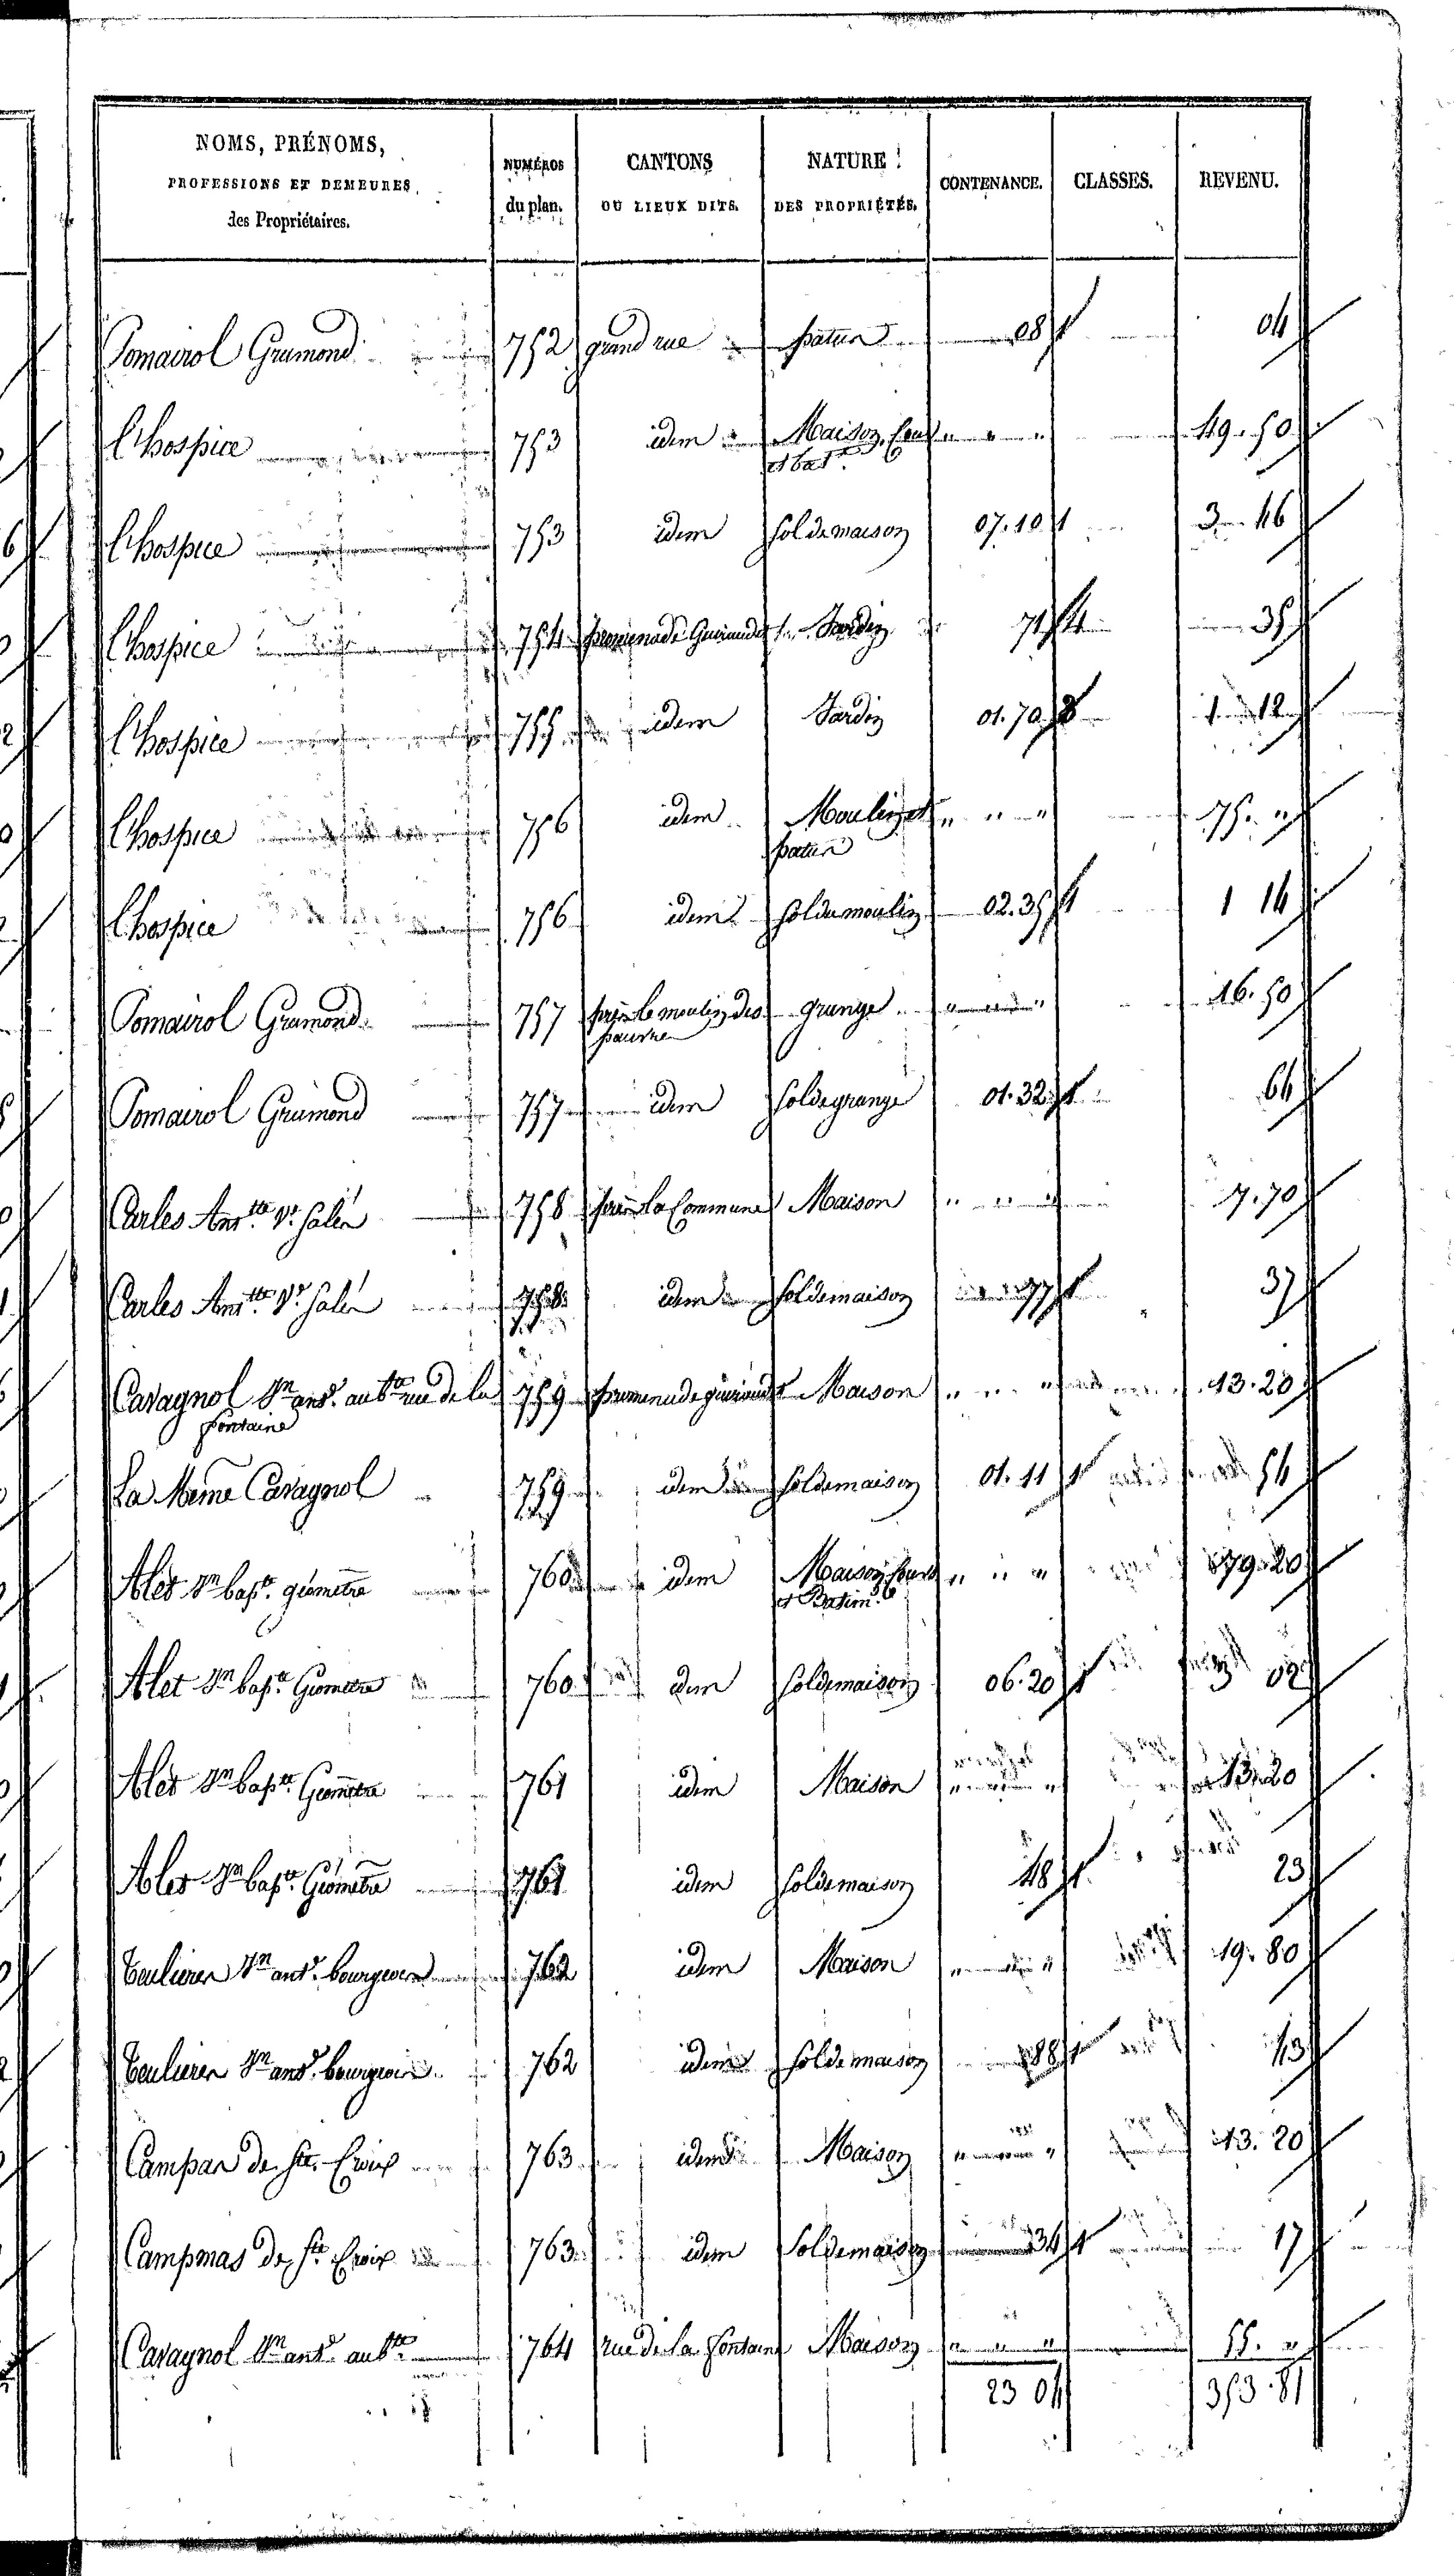 NOMS, PRÉNOMS, PROFESSIONS ET DEMEURES des Propriétaires. | NUMÉROS du plan. | CANTONS OU LIEUX DITS. | NATURE DES PROPRIÉTÉS. | CONTENANCE. | CLASSES. | REVENU.
Pomairol Gramond 752 grand rue patur 08 1 04
l'hospice 753 idem Maison, Cour " " " 49. 50
et bat.t
l'hospice 753 idem sol de maison 07. 10 1 3 46
l'hospice 754 promenade Guiraudet Jardin 71 1 35
l'hospice 755 idem Jardin 01. 70 2 1 12
l'hospice 756 idem Moulin et " " " 75. "
patur
l'hospice 756 idem sol du moulin 02. 35 1 1 14
Pomairol Gramond 757 le moulin des grange " " " 16. 50
pauvre
Pomairol Gramond 757 idem sol de grange 01. 32 1 64
Carles Ant.tte V.e Salen 758 la Commune Maison " " " 7. 70
Carles Ant.tte V.e Salen 758 idem sol de maison 77 1 37
Cavagnol Jn ant.e aub.te rue de la 759 promenade guiraudet Maison " " " 13. 20
fontaine
La Meme Cavagnol 759 idem sol de maison 01. 11 1 54
Alet Jn bap.te géometre 760 idem Maison, Cour " " " 79. 20
et Batim.t
Alet Jn bap.te Géometre 760 idem sol de maison 06. 20 1 3 02
Alet Jn bap.te Géometre 761 idem Maison " " " 13. 20
Alet Jn bap.te Géometre 761 idem sol de maison 48 1 23
Teulieres Jn ant.e bourgeois 762 idem Maison " " " 19. 80
Teulieres Jn ant.e bourgeois 762 idem sol de maison 88 1 43
Campas de Ste. Croix 763 idem Maison " " " 13. 20
Campmas de Ste Croix 763 idem Sol de maison 34 1 17
Cavagnol Jn ant.e aub.te 764 rue de la fontaine Maison " " " 55. "
23 04 353. 81